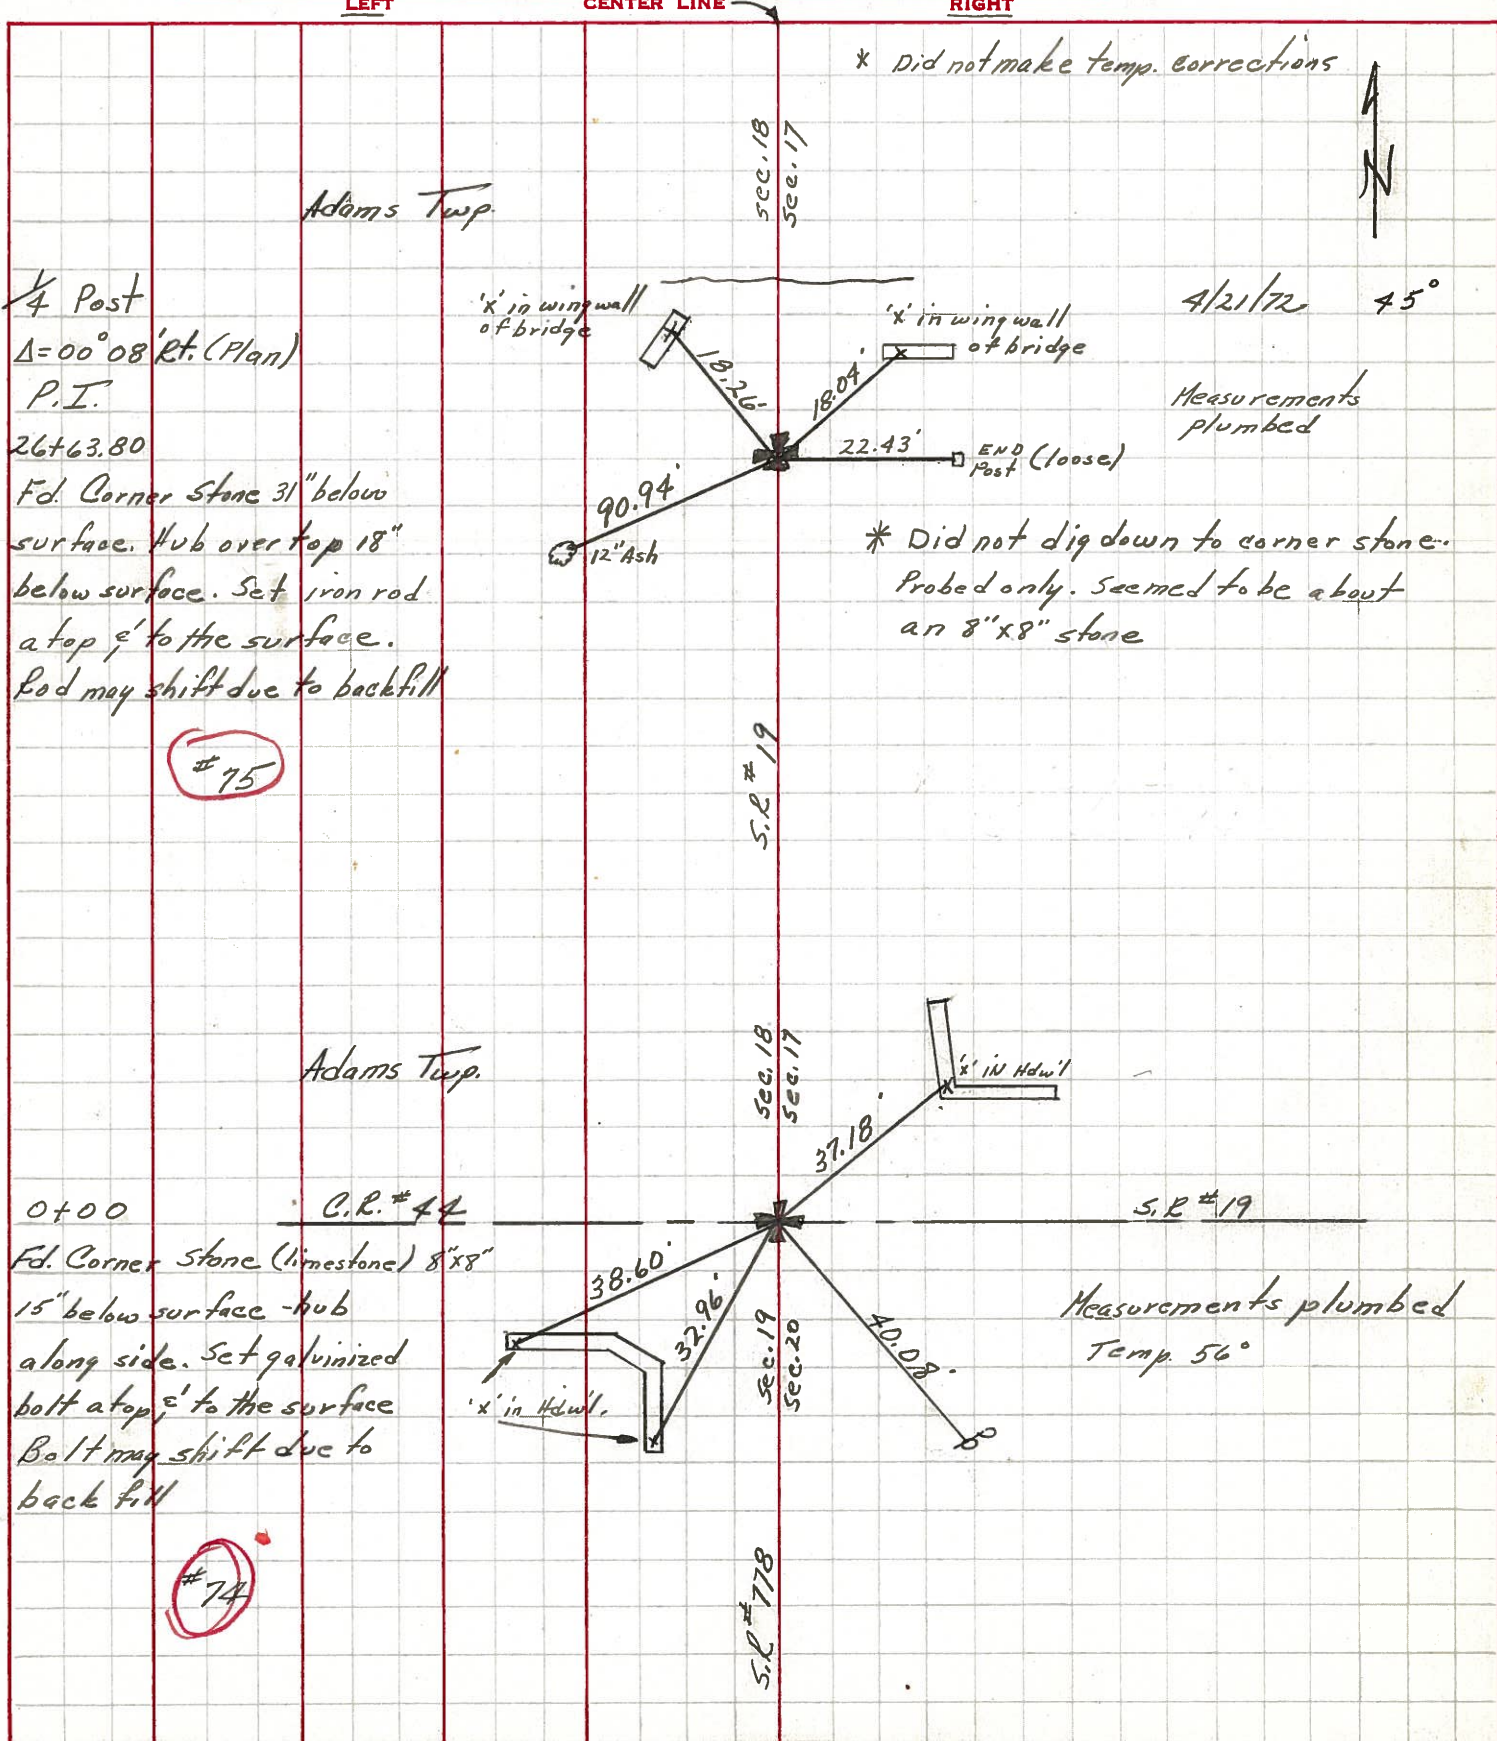 LEFT CENTER LINE RIGHT
* Did not make temp. corrections
Sec. 18
Sec. 17
N
Adams Twp.
1/4 Post
Δ=00°08' Rt. (Plan)
P.I.
26+63.80
Fd. Corner Stone 31" below
surface. Hub over top 18"
below surface. Set iron rod
atop & to the surface.
Rod may shift due to backfill
#75
'x' in wingwall
of bridge
18.26'
'x' in wingwall
of bridge
18.04'
22.43'
END
Post (loose)
90.94'
12" Ash
4/21/72 45°
Measurements
plumbed
* Did not dig down to corner stone.
Probed only. Seemed to be about
an 8"x8" stone
S.R #19
Adams Twp.
Sec. 18
Sec. 17
'x' in Hdw'l
37.18'
0+00
C.R. #44
S.R #19
Fd. Corner Stone (limestone) 8"x8"
15" below surface - hub
along side. Set galvinized
bolt atop & to the surface
Bolt may shift due to
back fill
#74
38.60'
32.96'
'x' in Hdw'l.
Sec. 19
Sec. 20
40.08'
Measurements plumbed
Temp. 56°
S.R #778